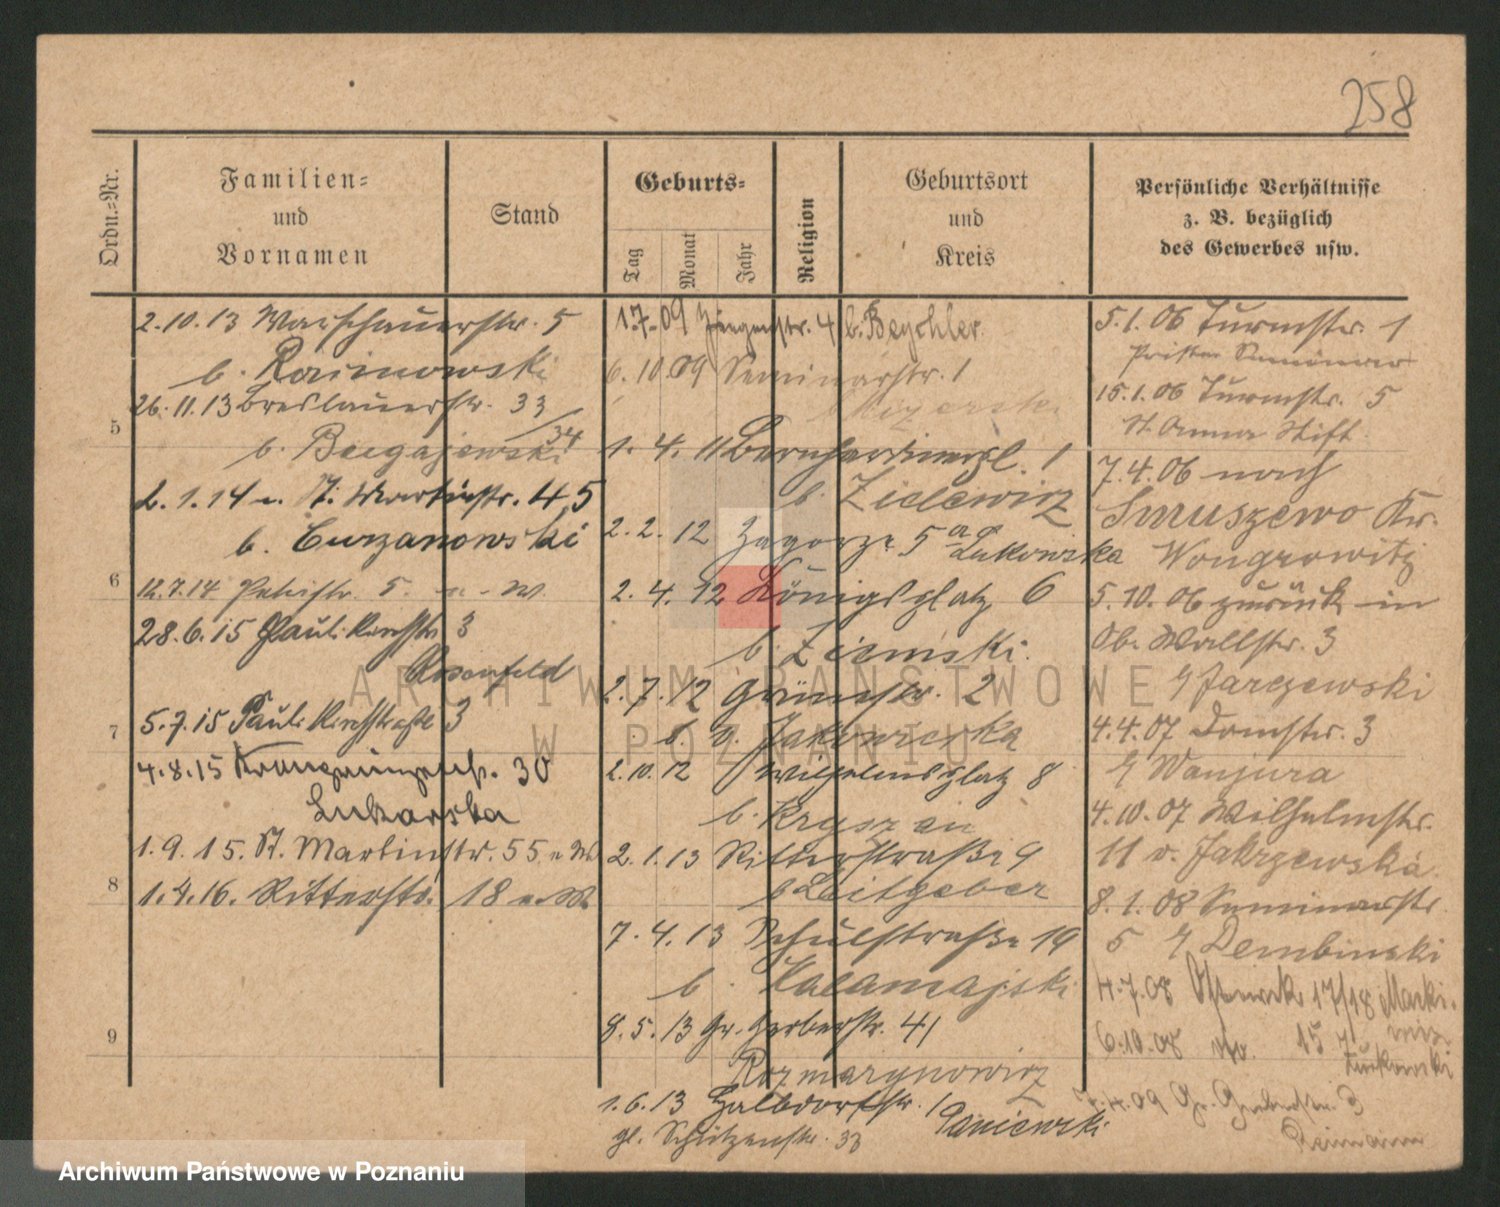 258
Ordn.=Nr.
Familien=
und
Vornamen
Stand
Geburts=
Tag
Monat
Jahr
Religion
Geburtsort
und
Kreis
Persönliche Verhältnisse
z. B. bezüglich
des Gewerbes usw.
5
6
7
8
9
2.10.13 Warschauerstr. 5
b. Rainowski
26.11.13 Breslauerstr. 33/34
b. Bugajewski
2.1.14 St. Martinstr. 45
b. Curzanowski
12.7.14 Petristr. 5.
28.6.15 Paulikirchstr. 3
Rosenfeld
5.7.15 Paulikirchstraße 3
4.8.15 30
Lukarska
1.9.15. St. Martinstr. 55
1.4.16. Ritterstr. 18
1.7.09 4 b. Beychler
6.10.09 Seminarstr. 1
1.4.11 Bernhardinerpl. 1
b. Zielewicz
2.2.12 Zagorze 5
Lukowska
2.4.12 Königsplatz 6
b. Ziemski
2.7.12 Grünestr. 2
b. v. Jakowicka
2.10.12 Wilhelmsplatz 8
b. Kryszan
2.1.13 Ritterstraße 9
b Leitgeber
7.4.13 Schulstraße 19
b. Kalamajski
8.5.13 Gr. Gerberstr. 41
Rozmarynowicz
1.6.13 Halbdorfstr. 1
Janiewski
gl. Schützenstr. 33
5.1.06 Turmstr. 1
15.1.06 Turmstr. 5
St. Anna Stift
7.4.06 nach
Smuszewo Kr.
Wongrowitz
5.10.06 zurück in
Ob. Wallstr. 3
Jarczewski
4.4.07 Domstr. 3
Wanjura
4.10.07 Wilhelmstr.
11 v. Jakrzewska
8.1.08 Seminarstr.
5 Dembinski
4.7.08 17/18
6.10.08 15
7.4.09 Gr. Gerberstr. 3
Reimann
ARCHIWUM PAŃSTWOWE
W POZNANIU
Archiwum Państwowe w Poznaniu